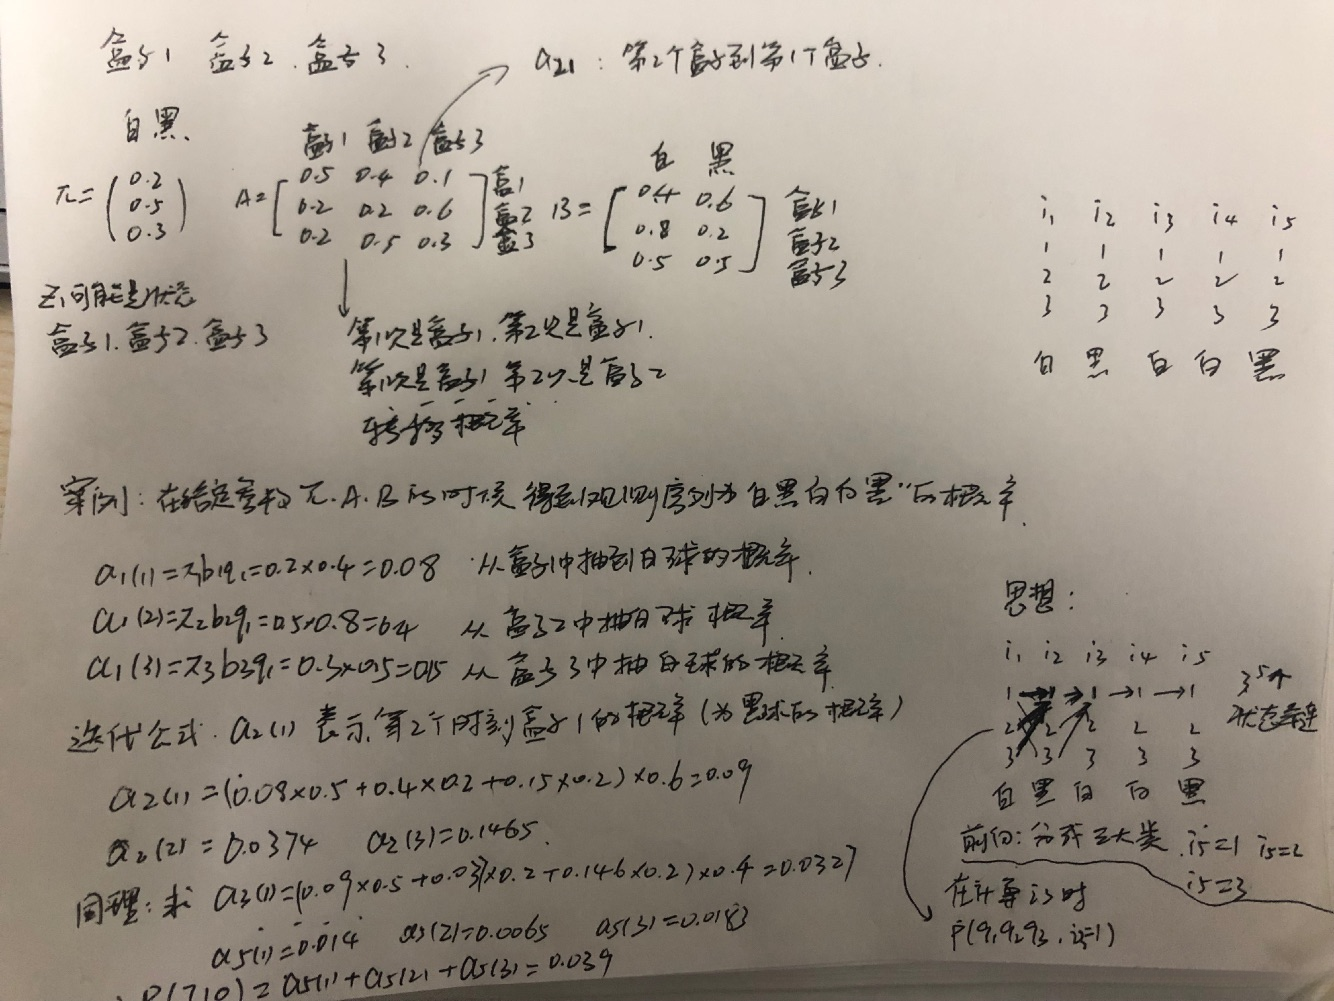 盒子1 盒子2 盒子3
a21: 第2个盒子到第1个盒子.
白黑
π=(0.2 0.5 0.3)
盒子1 盒子2 盒子3
A=[0.5 0.4 0.1 盒1
0.2 0.2 0.6 盒2
0.2 0.5 0.3] 盒3
白 黑
B=[0.4 0.6 盒子1
0.8 0.2 盒子2
0.5 0.5] 盒子3
i1 i2 i3 i4 i5
1 1 1 1 1
2 2 2 2 2
3 3 3 3 3
白 黑 白 白 黑
可能是状态
盒子1.盒子2.盒子3
第1次是盒子1.第2次是盒子1.
第1次是盒子1 第2次是盒子2
转移概率
案例:在给定参数π.A.B的时候得到观测序列为"白黑白白黑"的概率
a1(1)=π1b1q1=0.2×0.4=0.08 从盒子1中抽到白球的概率.
a1(2)=π2b2q1=0.5×0.8=0.4 从盒子2中抽白球概率
a1(3)=π3b3q1=0.3×0.5=0.15 从盒子3中抽白球的概率
迭代公式.a2(1)表示第2个时刻盒子1的概率(为黑球的概率)
a2(1)=(0.08×0.5+0.4×0.2+0.15×0.2)×0.6=0.09
a2(2)=0.0374 a2(3)=0.1465
同理:求 a3(1)=(0.09×0.5+0.037×0.2+0.146×0.2)×0.4=0.0327
a5(1)=0.014 a5(2)=0.0065 a5(3)=0.0183
=a5(1)+a5(2)+a5(3)=0.039
思想:
i1 i2 i3 i4 i5
1→1→1→1→1
2 2 2 2 2
3 3 3 3 3
白 黑 白 白 黑
3^5个
状态
前向:分成三大类.i5=1 i5=2
i5=3
在计算i3时
P(q1q2q3,i3=1)